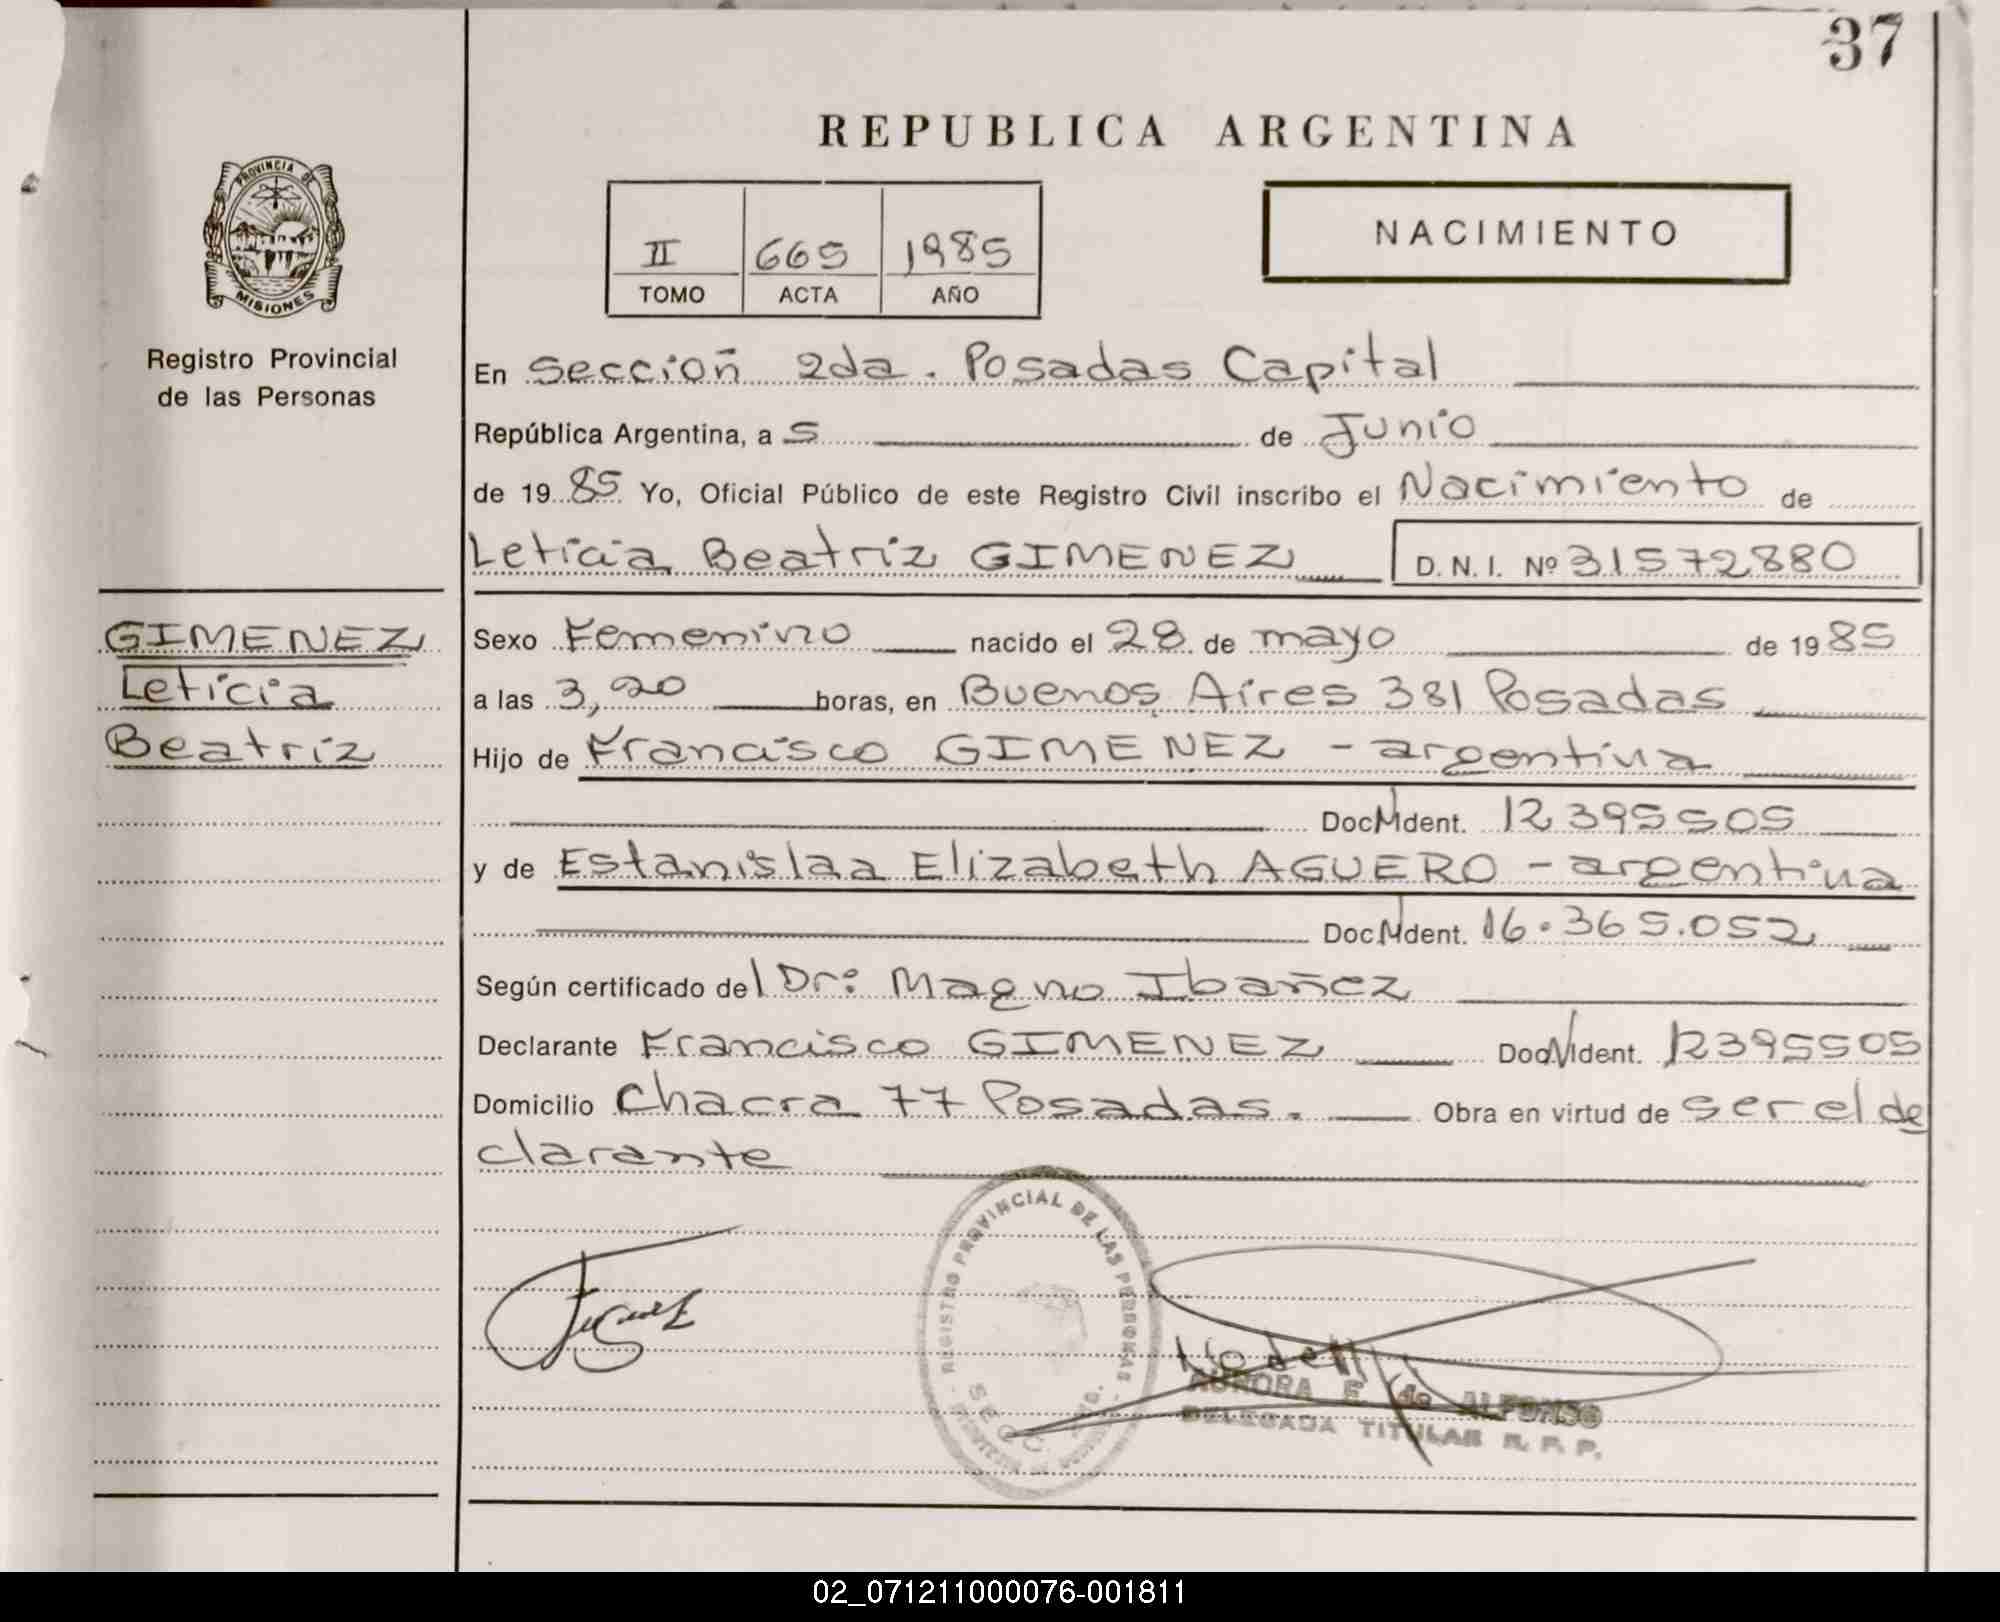 37
REPUBLICA ARGENTINA
PROVINCIA DE
MISIONES
II 665 1985
TOMO ACTA AÑO
NACIMIENTO
Registro Provincial
de las Personas
En Sección 2da. Posadas Capital
República Argentina, a 5 de Junio
de 1985 Yo, Oficial Público de este Registro Civil inscribo el Nacimiento de
Leticia Beatriz GIMENEZ D. N. I. Nº 31572880
GIMENEZ
Leticia
Beatriz
Sexo Femenino nacido el 28 de mayo de 1985
a las 3,20 horas, en Buenos Aires 381 Posadas
Hijo de Francisco GIMENEZ - argentina
Doc. Ident. 12395505
y de Estanislaa Elizabeth AGUERO - argentina
Doc. Ident. 16.365.052
Según certificado del Dr: Magno Ibañez
Declarante Francisco GIMENEZ Doc. Ident. 12395505
Domicilio Chacra 77 Posadas. Obra en virtud de ser el de
clarante
REGISTRO PROVINCIAL DE LAS PERSONAS
AURORA F. de ALFONSO
DELEGADA TITULAR R. P. P.
02_071211000076-001811